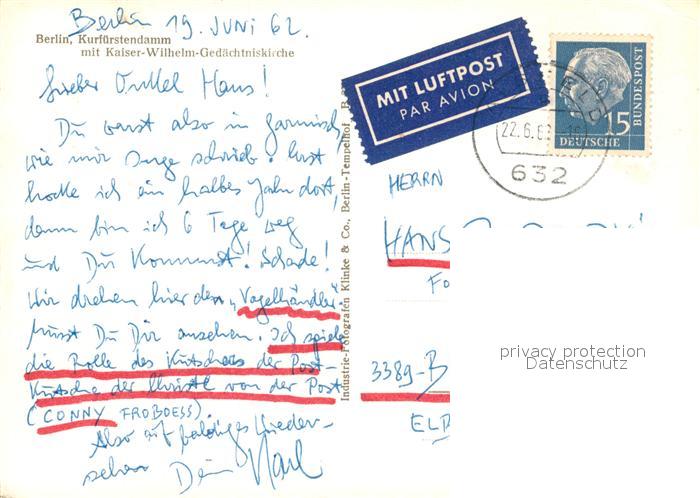 Berlin 19. JUNI 62.
Berlin, Kurfürstendamm
mit Kaiser-Wilhelm-Gedächtniskirche
Lieber Onkel Hans!
Du warst also in Garmisch,
wie mir Inge schrieb. Erst
hocke ich ein halbes Jahr dort,
dann bin ich 6 Tage weg
und Du kommst! Schade!
Wir drehen hier den „Vogelhändler"
musst Du Dir ansehen. Ich spiele
die Rolle des Kutschers der Post-
Kutsche der Christl von der Post
(CONNY FROBOESS).
Also auf baldiges Wieder-
sehen Dein
Industrie-Fotografen Klinke & Co., Berlin-Tempelhof
MIT LUFTPOST
PAR AVION
15
DEUTSCHE
BUNDESPOST
22.6.62
632
HERRN
HANS
3389-B
ELB
privacy protection
Datenschutz